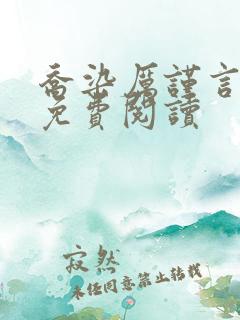 喬染厲謹言
免費閱讀
寂然
未经同意禁止转载